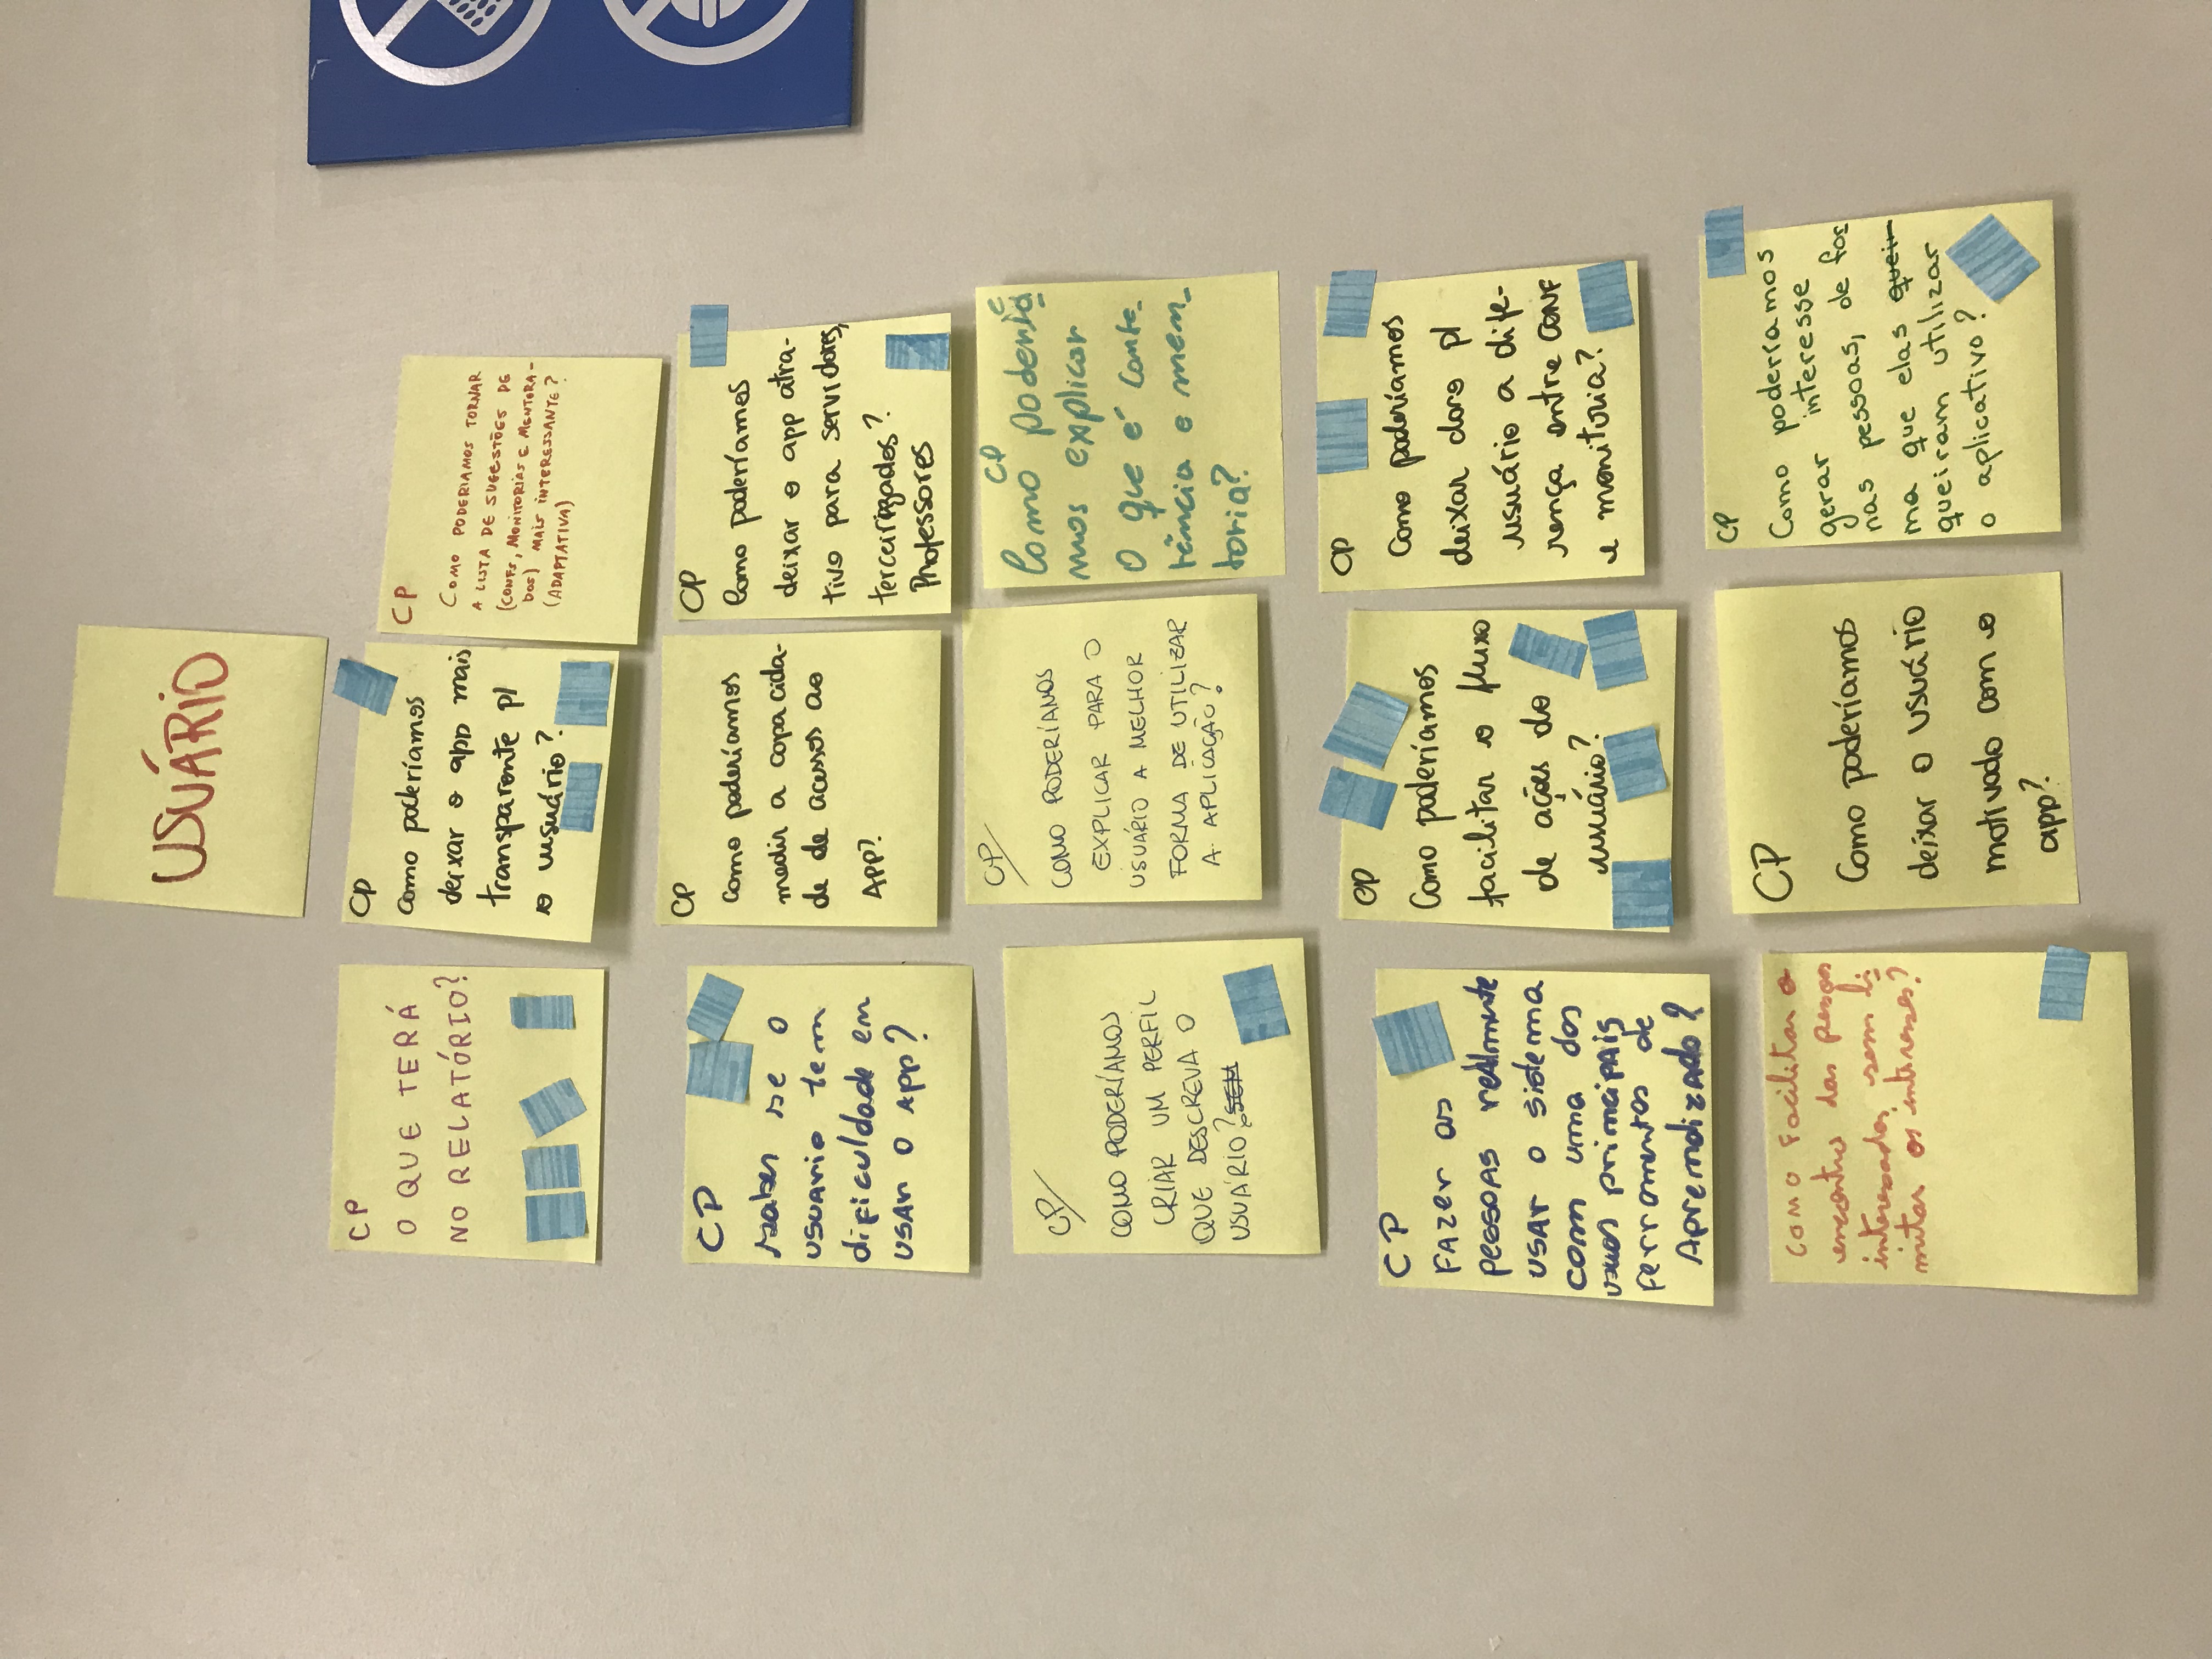 USUÁRIO
CP
O QUE TERÁ
NO RELATÓRIO?
CP
Como poderíamos
deixar o app mais
transparente p/
o usuário?
CP
COMO PODERIAMOS TORNAR
A LISTA DE SUGESTÕES DE
(CONFS, MONITORIAS E MENTORA-
DOS) MAIS INTERESSANTE?
(ADAPTATIVA)
CP
saber se o
usuario tem
dificuldade em
usar o App?
CP
Como poderíamos
medir a capacida-
de de acessos ao
APP?
CP
Como poderíamos
deixar o app atra-
tivo para servidores,
terceirizados?
Professores
CP
COMO PODERÍAMOS
CRIAR UM PERFIL
QUE DESCREVA O
USUÁRIO? SEM
CP
COMO PODERÍAMOS
EXPLICAR PARA O
USUÁRIO A MELHOR
FORMA DE UTILIZAR
A APLICAÇÃO?
CP
Como poderia
mos explicar
O que é
e men-
toria?
CP
Fazer as
pessoas realmente
usar o sistema
com uma das
principais
ferramentas de
Aprendizado?
CP
Como poderíamos
facilitar o fluxo
de ações do
usuário?
CP
Como poderíamos
deixar claro p/
usuário a dife-
rença entre CONF
e monitoria?
COMO Facilitar o
encontro das pessoas
interessadas, sem li
mitar os interesses?
CP
Como poderíamos
deixar o usuário
motivado com o
app?
CP
Como poderíamos
gerar interesse
nas pessoas, de for
ma que elas queir
queiram utilizar
o aplicativo?